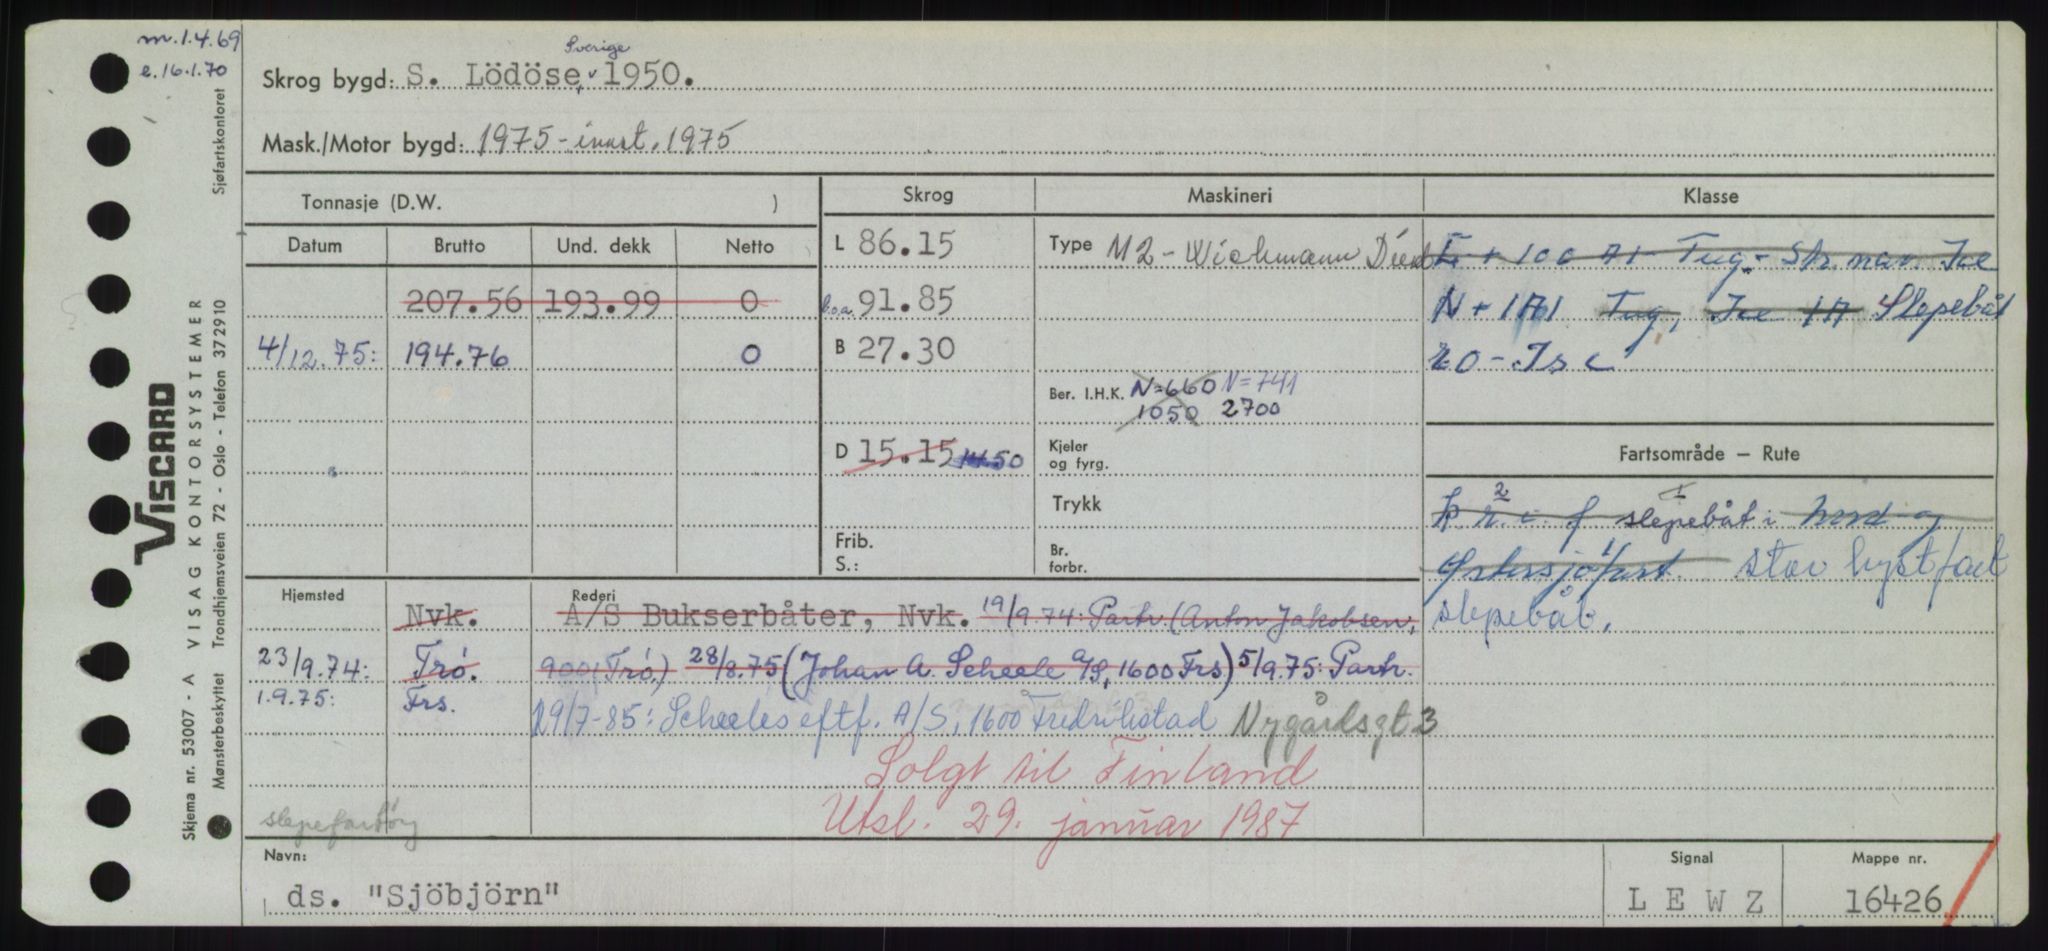 m.1.4.69
e.16.1.70
Sverige
Skrog bygd: S. Lödöse, 1950.
Mask./Motor bygd: 1975 - innst. 1975
Tonnasje (D.W. )
Skrog Maskineri Klasse
Datum Brutto Und. dekk Netto
L 86.15
Type M2 - Wichmann Diesel
207.56 193.99 0
L.o.a. 91.85
4/12.75: 194.76 0
B 27.30
Ber. I.H.K. N=660 N=741
1050 2700
D 15.15 14.50
Kjeler og fyrg.
Trykk
Frib.
S.:
Br. forbr.
+ 100 A1 Tug - Str. nav. Ice
N + 1A1 Tug, Ice 1A Slepebåt
E0 - Is C
Fartsområde – Rute
slepebåt i Nord- og
Østersjøfart stor kystfart
slepebåt.
Hjemsted Rederi
Nvk. A/S Bukserbåter, Nvk. 19/9.74: Partr. (Anton Jakobsen,
23/9.74: Trö. 9001 Trö.) 28/8.75 (Johan A. Scheele A/S, 1600 Frs) 5/9.75: Partr.
1.9.75: Frs.
29/7-85: Scheeles eftf. A/S, 1600 Fredrikstad Nygårdsgt 3
Solgt til Finland
Utsl. 29. januar 1987
slepefartøy
Navn:
ds. "Sjöbjörn"
Signal
L E W Z
Mappe nr.
16426
Sjøfartskontoret
VISCARD
VISAG KONTORSYSTEMER
Trondhjemsveien 72 - Oslo - Telefon 372910
Skjema nr. 53007 - A
Mønsterbeskyttet